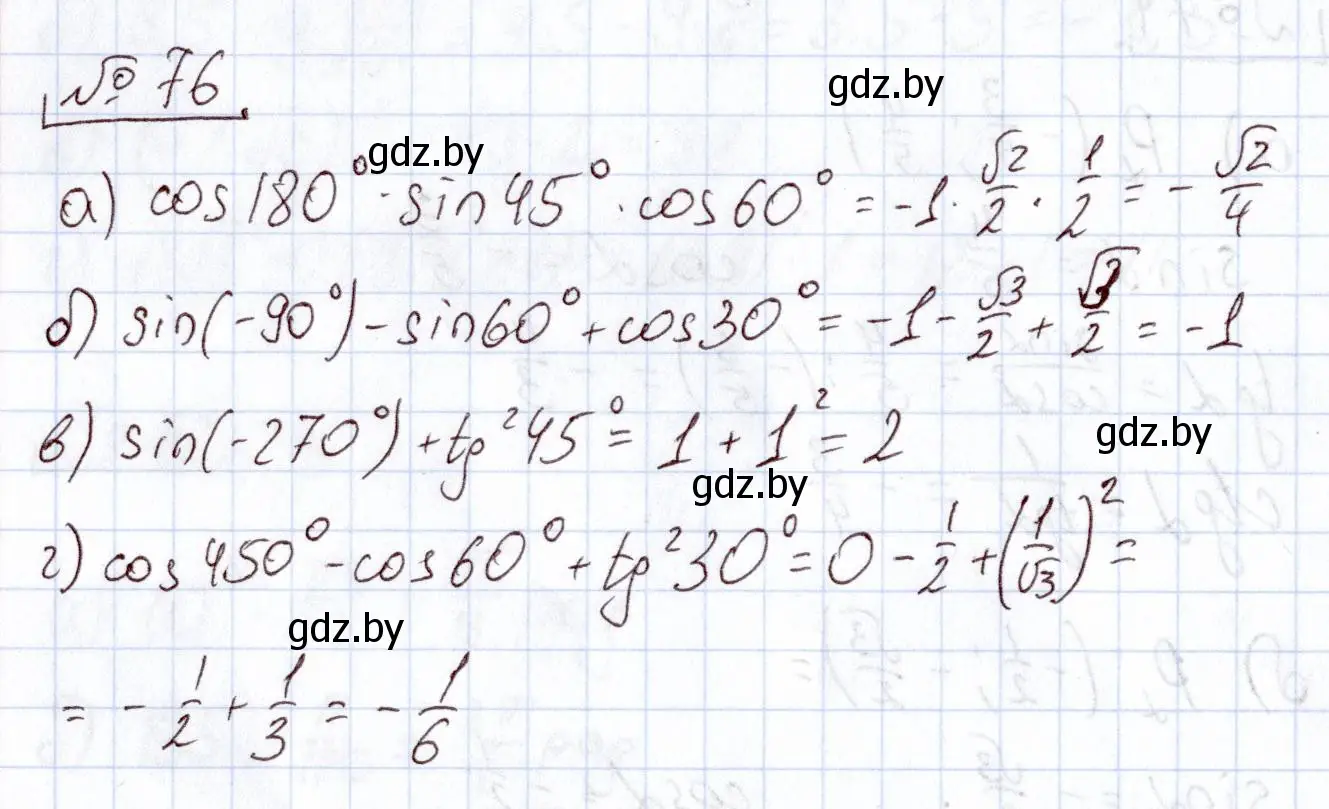 № 76
gdz.by
gdz.by
а) cos180° · sin45° · cos60° = -1 · √2/2 · 1/2 = - √2/4
б) sin(-90°) - sin60° + cos30° = -1 - √3/2 + √3/2 = -1
в) sin(-270°) + tg²45° = 1 + 1² = 2
gdz.by
gdz.by
г) cos450° - cos60° + tg²30° = 0 - 1/2 + (1/√3)² =
gdz.by
= - 1/2 + 1/3 = - 1/6